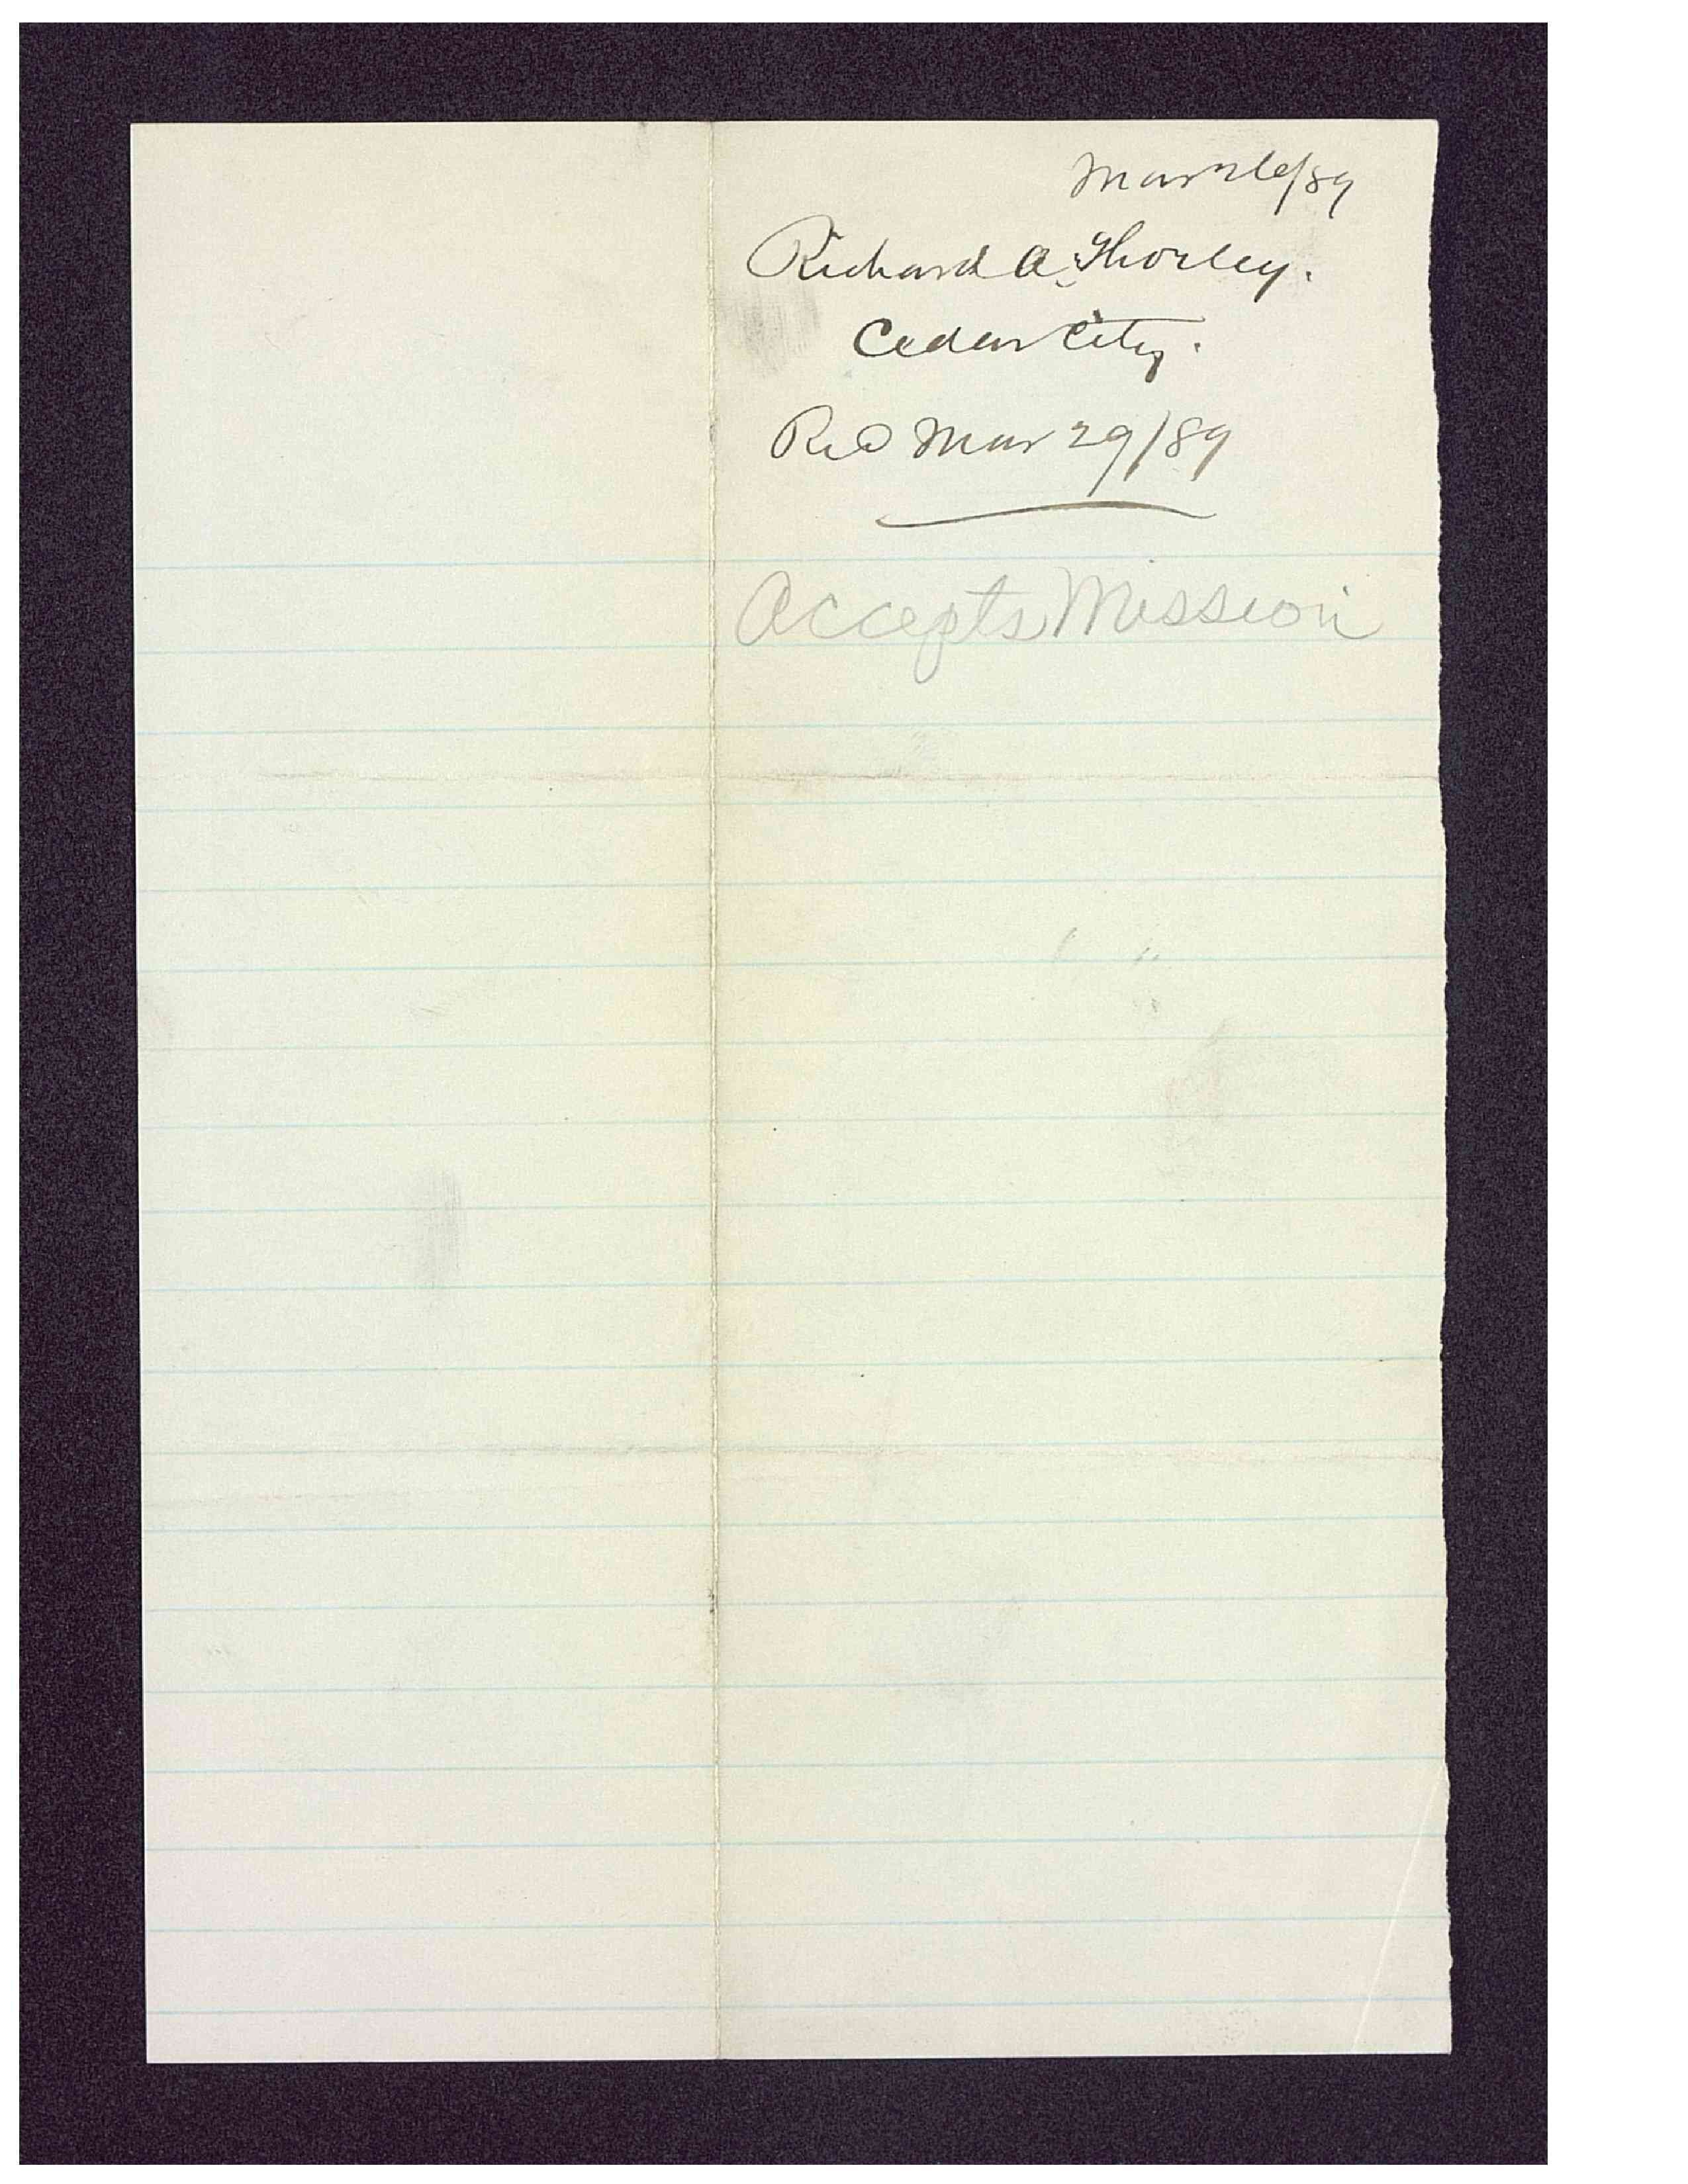 Mar 26/89
Richard A. Thorley.
Cedar City.
Rec Mar 29/89
Accepts Mission